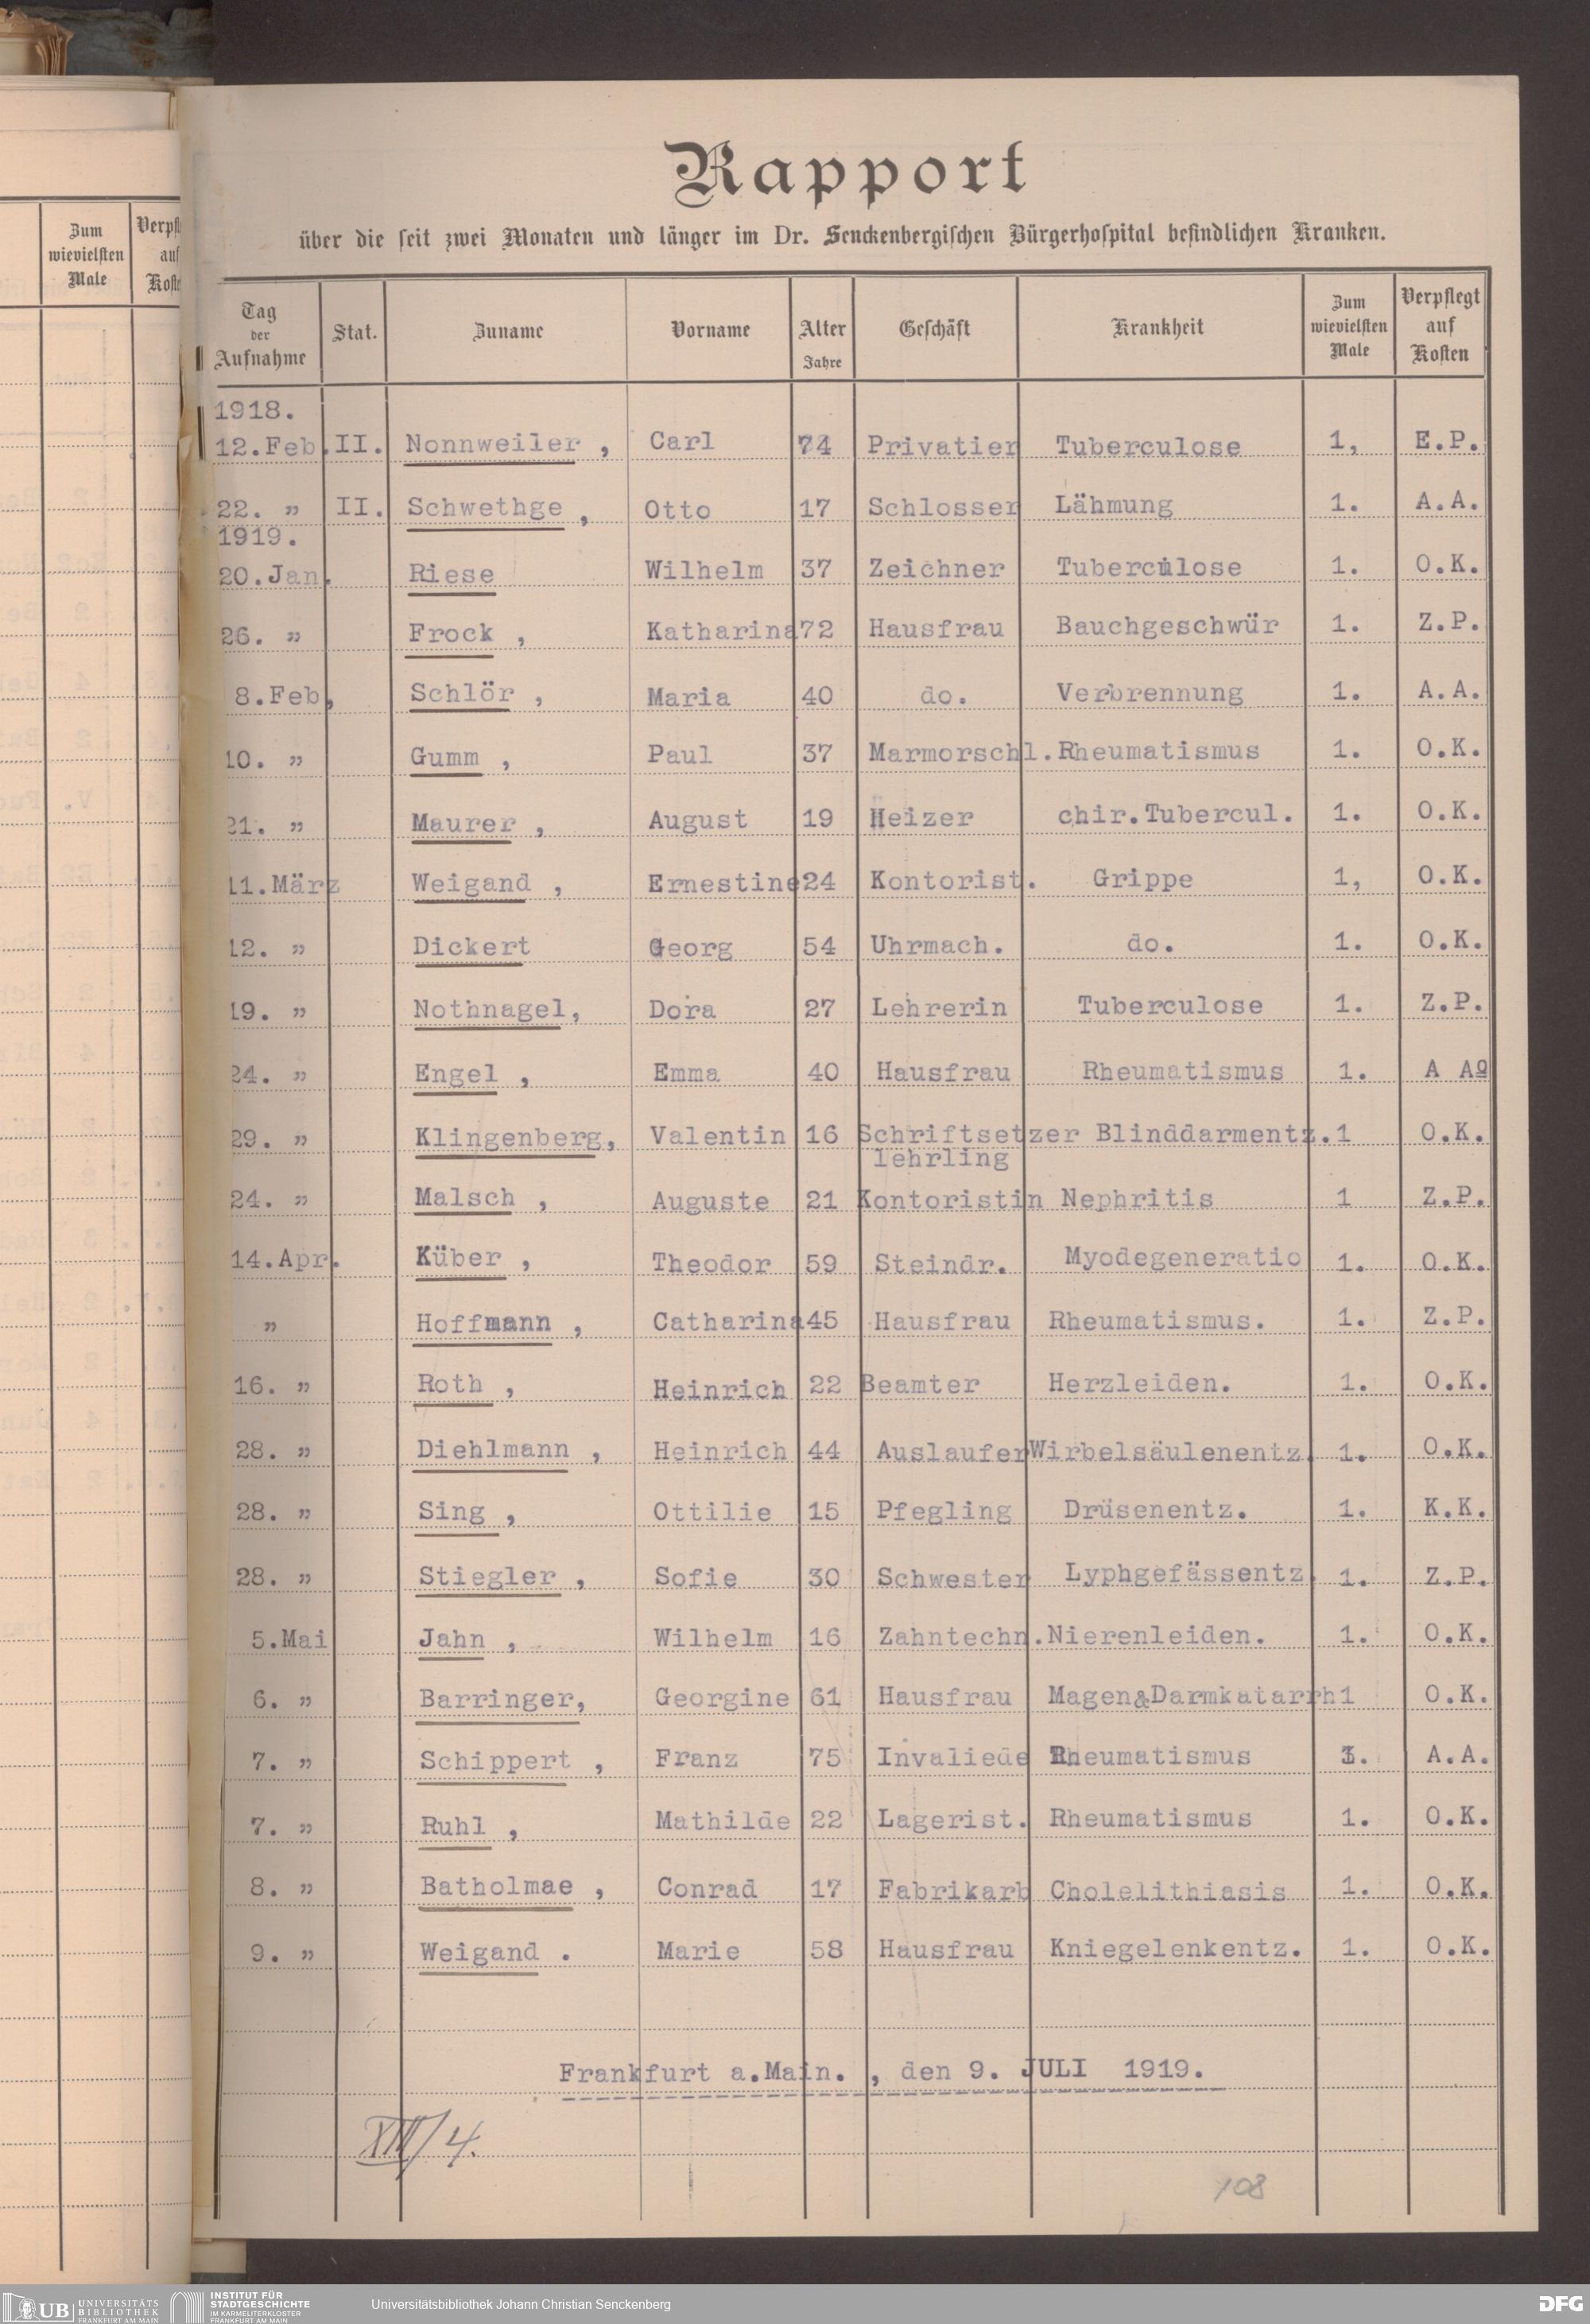 Zum
wievielsten
Male
Verpfl
auf
Koste
Rapport
über die seit zwei Monaten und länger im Dr. Senckenbergischen Bürgerhospital befindlichen Kranken.
Tag der Aufnahme Stat. Zuname Vorname Alter Jahre Geschäft Krankheit Zum wievielsten Male Verpflegt auf Kosten
1918.
12.Feb. II. Nonnweiler , Carl 74 Privatier Tuberculose 1, E.P.
22. " II. Schwethge , Otto 17 Schlosser Lähmung 1. A.A.
1919.
20.Jan. Riese Wilhelm 37 Zeichner Tuberculose 1. O.K.
26. " Frock , Katharina 72 Hausfrau Bauchgeschwür 1. Z.P.
8.Feb, Schlör , Maria 40 do. Verbrennung 1. A.A.
10. " Gumm , Paul 37 Marmorschl. Rheumatismus 1. O.K.
21. " Maurer , August 19 Heizer chir.Tubercul. 1. O.K.
11.März Weigand , Ernestine 24 Kontorist. Grippe 1, O.K.
12. " Dickert Georg 54 Uhrmach. do. 1. O.K.
19. " Nothnagel, Dora 27 Lehrerin Tuberculose 1. Z.P.
24. " Engel , Emma 40 Hausfrau Rheumatismus 1. A Aº
29. " Klingenberg, Valentin 16 Schriftsetzer Blinddarmentz. 1 O.K.
lehrling
24. " Malsch , Auguste 21 Kontoristin Nephritis 1 Z.P.
14.Apr. Küber , Theodor 59 Steindr. Myodegeneratio 1. O.K.
" Hoffmann , Catharina 45 Hausfrau Rheumatismus. 1. Z.P.
16. " Roth , Heinrich 22 Beamter Herzleiden. 1. O.K.
28. " Diehlmann , Heinrich 44 Auslaufer Wirbelsäulenentz. 1. O.K.
28. " Sing , Ottilie 15 Pfegling Drüsenentz. 1. K.K.
28. " Stiegler , Sofie 30 Schwester Lyphgefässentz. 1. Z.P.
5.Mai Jahn , Wilhelm 16 Zahntechn. Nierenleiden. 1. O.K.
6. " Barringer, Georgine 61 Hausfrau Magen&Darmkatarrh 1 O.K.
7. " Schippert , Franz 75 Invaliede Rheumatismus 3. A.A.
7. " Ruhl , Mathilde 22 Lagerist. Rheumatismus 1. O.K.
8. " Batholmae , Conrad 17 Fabrikarb Cholelithiasis 1. O.K.
9. " Weigand . Marie 58 Hausfrau Kniegelenkentz. 1. O.K.
Frankfurt a.Main. , den 9. JULI 1919.
XIII/4.
108
UB UNIVERSITÄTS
BIBLIOTHEK
FRANKFURT AM MAIN
INSTITUT FÜR
STADTGESCHICHTE
IM KARMELITERKLOSTER
FRANKFURT AM MAIN
Universitätsbibliothek Johann Christian Senckenberg
DFG